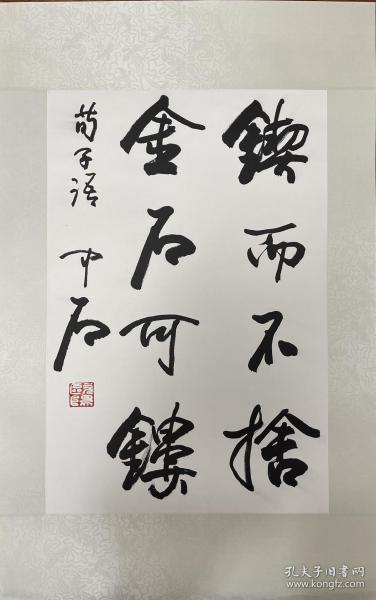 鍥而不捨
金石可鏤
荀子语
中石
孔夫子旧书网
www.kongfz.com